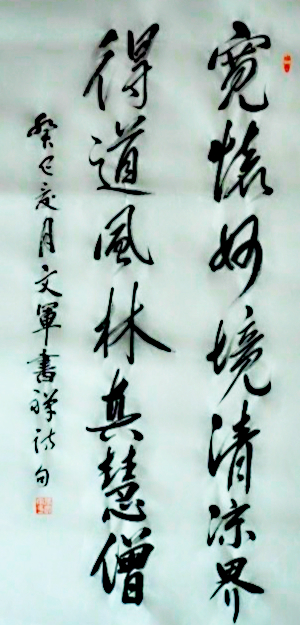 寛懷妙境清涼界
得道風林真慧僧
癸巳亥月文軍書禅詩句